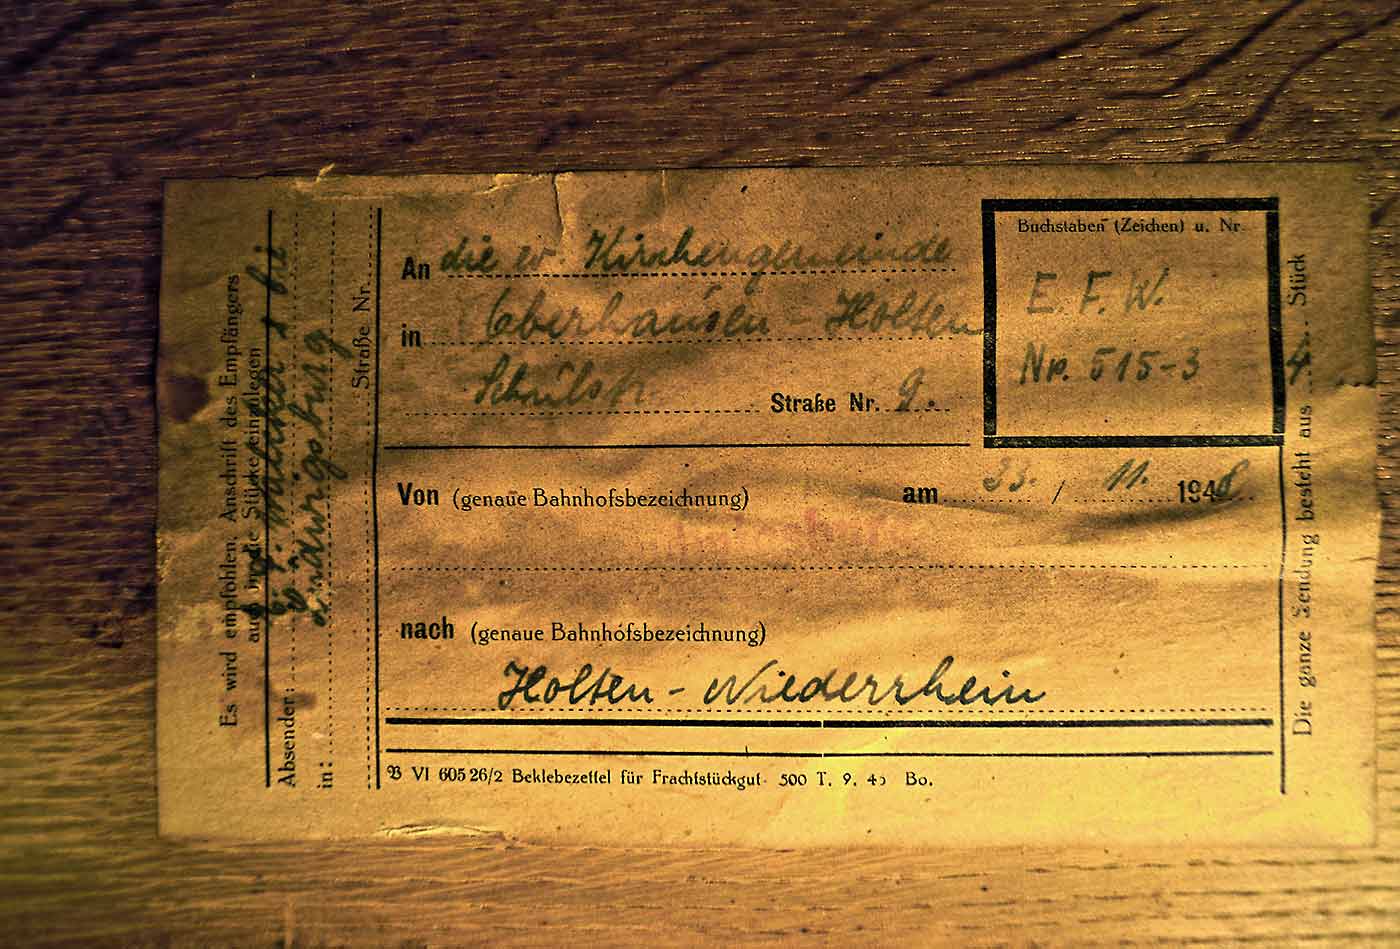 Es wird empfohlen, Anschrift des Empfängers
auch in die Stücke einzulegen
Absender: E. F. Walcker & Cie
in: Ludwigsburg
Straße Nr.
An die ev. Kirchengemeinde
in Oberhausen - Holten
Schulstr. Straße Nr. 9.
Buchstaben (Zeichen) u. Nr.
E. F. W.
Nr. 515-3
Von (genaue Bahnhofsbezeichnung) am 23. / 11. 1948
nach (genaue Bahnhofsbezeichnung)
Holten - Niederrhein
VI 605 26/2 Beklebezettel für Frachtstückgut 500 T. 9. 45 Bo.
Die ganze Sendung besteht aus 4 Stück